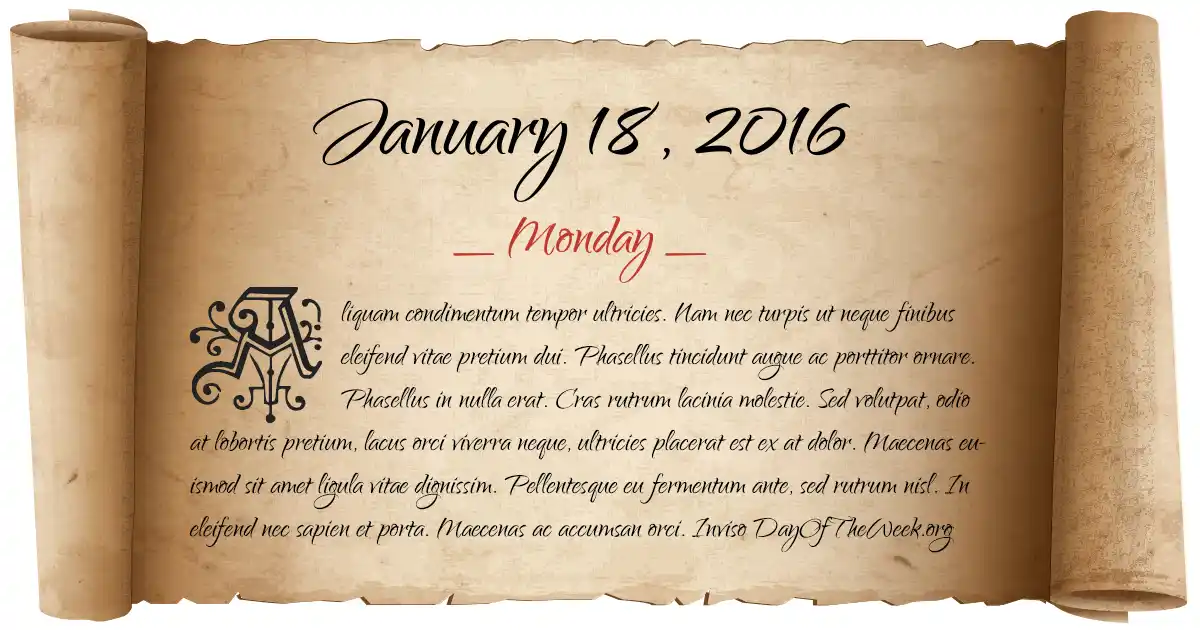 January 18, 2016
_ Monday _
Aliquam condimentum tempor ultricies. Nam nec turpis ut neque finibus
eleifend vitae pretium dui. Phasellus tincidunt augue ac porttitor ornare.
Phasellus in nulla erat. Cras rutrum lacinia molestie. Sed volutpat, odio
at lobortis pretium, lacus orci viverra neque, ultricies placerat est ex at dolor. Maecenas eu-
ismod sit amet ligula vitae dignissim. Pellentesque eu fermentum ante, sed rutrum nisl. In
eleifend nec sapien et porta. Maecenas ac accumsan orci. Inviso DayOfTheWeek.org